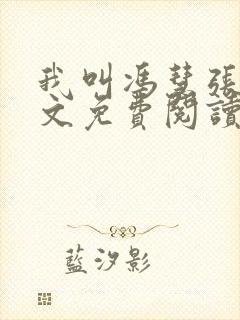 我叫馮慧張
文免費閱讀
藍汐影